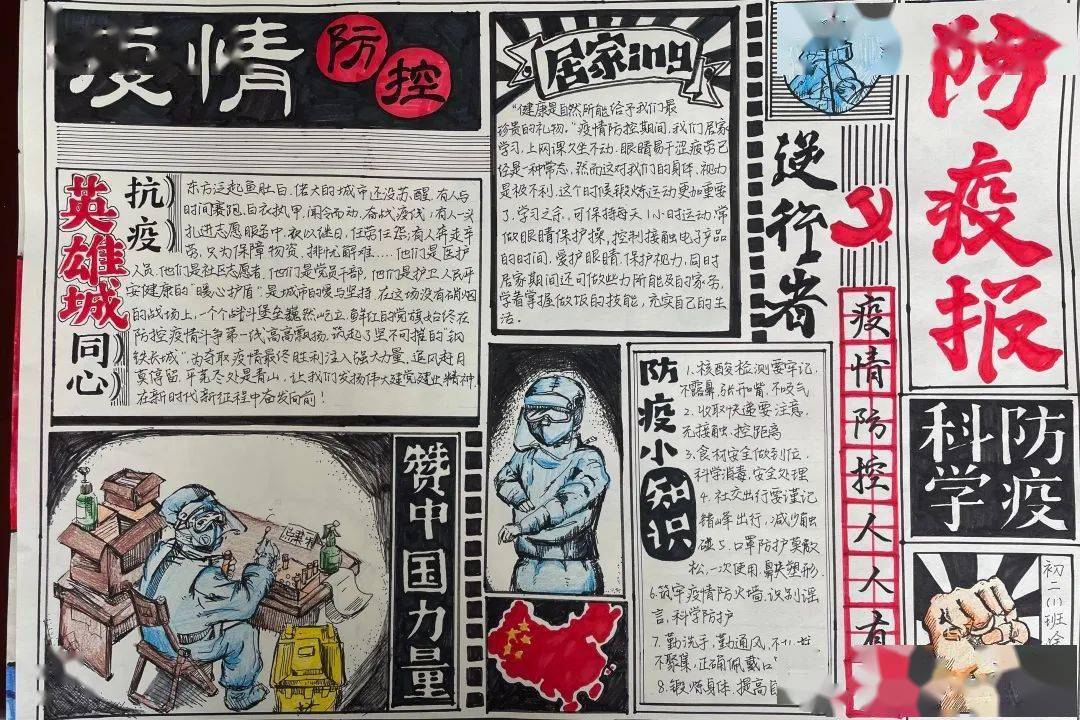 疫情防控
英雄城
抗疫
同心
东方泛起鱼肚白,偌大的城市还没苏醒,有人与
时间赛跑,白衣执甲,闻令而动,奋战疫线;有人一头
扎进志愿服务中,夜以继日,任劳任怨;有人奔走辛
劳,只为保障物资,排忧解难....他们是医护
人员,他们是社区志愿者,他们是党员干部,他们是护卫人民平
安健康的“暖心护盾”是城市的爱与坚持.在这场没有硝烟
的战场上,一个个战斗堡垒巍然屹立,鲜红的党旗始终在
防控疫情斗争第一线高高飘扬,筑起了坚不可摧的“钢
铁长城”,为夺取疫情最终胜利注入强大力量,追风赶月
莫停留,平芜尽处是青山,让我们发扬伟大建党建业精神,
在新时代新征程中奋发向前!
居家ing
“健康是自然所能给予我们最
珍贵的礼物.”疫情防控期间,我们居家
学习,上网课久坐不动,眼睛易干涩疲劳已
经是一种常态,然而这对我们的身体、视力
是极不利.这个时候锻炼运动更加重要
了.学习之余,可保持每天1小时运动,常
做眼睛保护操,控制接触电子产品
的时间,爱护眼睛,保护视力.同时
居家期间还可做些力所能及的家务,
学着掌握做饭的技能,充实自己的生
活.
逆行者
防疫报
疫情防控人人有
科学
防疫
赞中国力量
防疫小知识
1.核酸检测要牢记,
不露鼻,张开嘴,不哈气
2.收取快递要注意,
无接触,控距离
3.食材安全做到位,
科学消毒,安全处理
4.社交出行要谨记
错峰出行,减少触
碰 5.口罩防护莫放
松,一次使用,鼻夹塑形.
6.筑牢疫情防火墙,识别谣
言,科学防护
7.勤洗手,勤通风,不
不聚集,正确佩戴口
8.锻炼身体,提高
初二(1)班